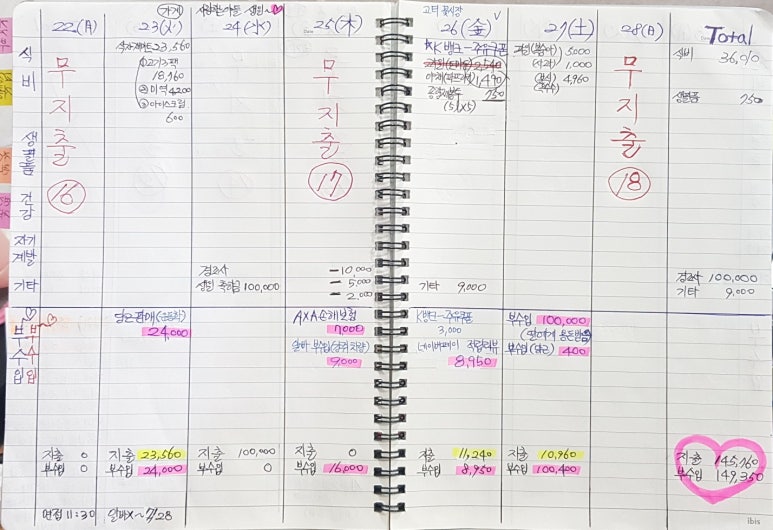 22(月)
23(火)
(가게)
24(水)
25(木)
고터 꽃시장
26(金)
V
27(土)
28(日)
Total
식비
생필품
건강
자기계발
기타
부수입
부수입
무지출
16
23,560
①고기누팩
18,960
②미역 4200
③아이스크림
600
경조사
생일 축하금 100,000
무지출
17
-10,000
-5,000
-2,000
K뱅크-주유쿠폰
2,540
1,490
750
(5)(x5)
기타 9,000
5,000
(사과) 1,000
4,960
무지출
18
식비
생필품 750
경조사 100,000
기타 9,000
당근판매
24,000
AXA손해보험
7,000
9,000
K뱅크-주유쿠폰
3,000
네이버페이
8,950
부수입 100,000
부수입(당근) 400
지출 0
부수입 0
지출 23,560
부수입 24,000
지출 100,000
부수입 0
지출 0
부수입 16,000
지출 11,240
부수입 8,950
지출 10,960
부수입 100,400
지출 145,760
부수입 149,350
면접 11:30
알바X~7/28
ibis